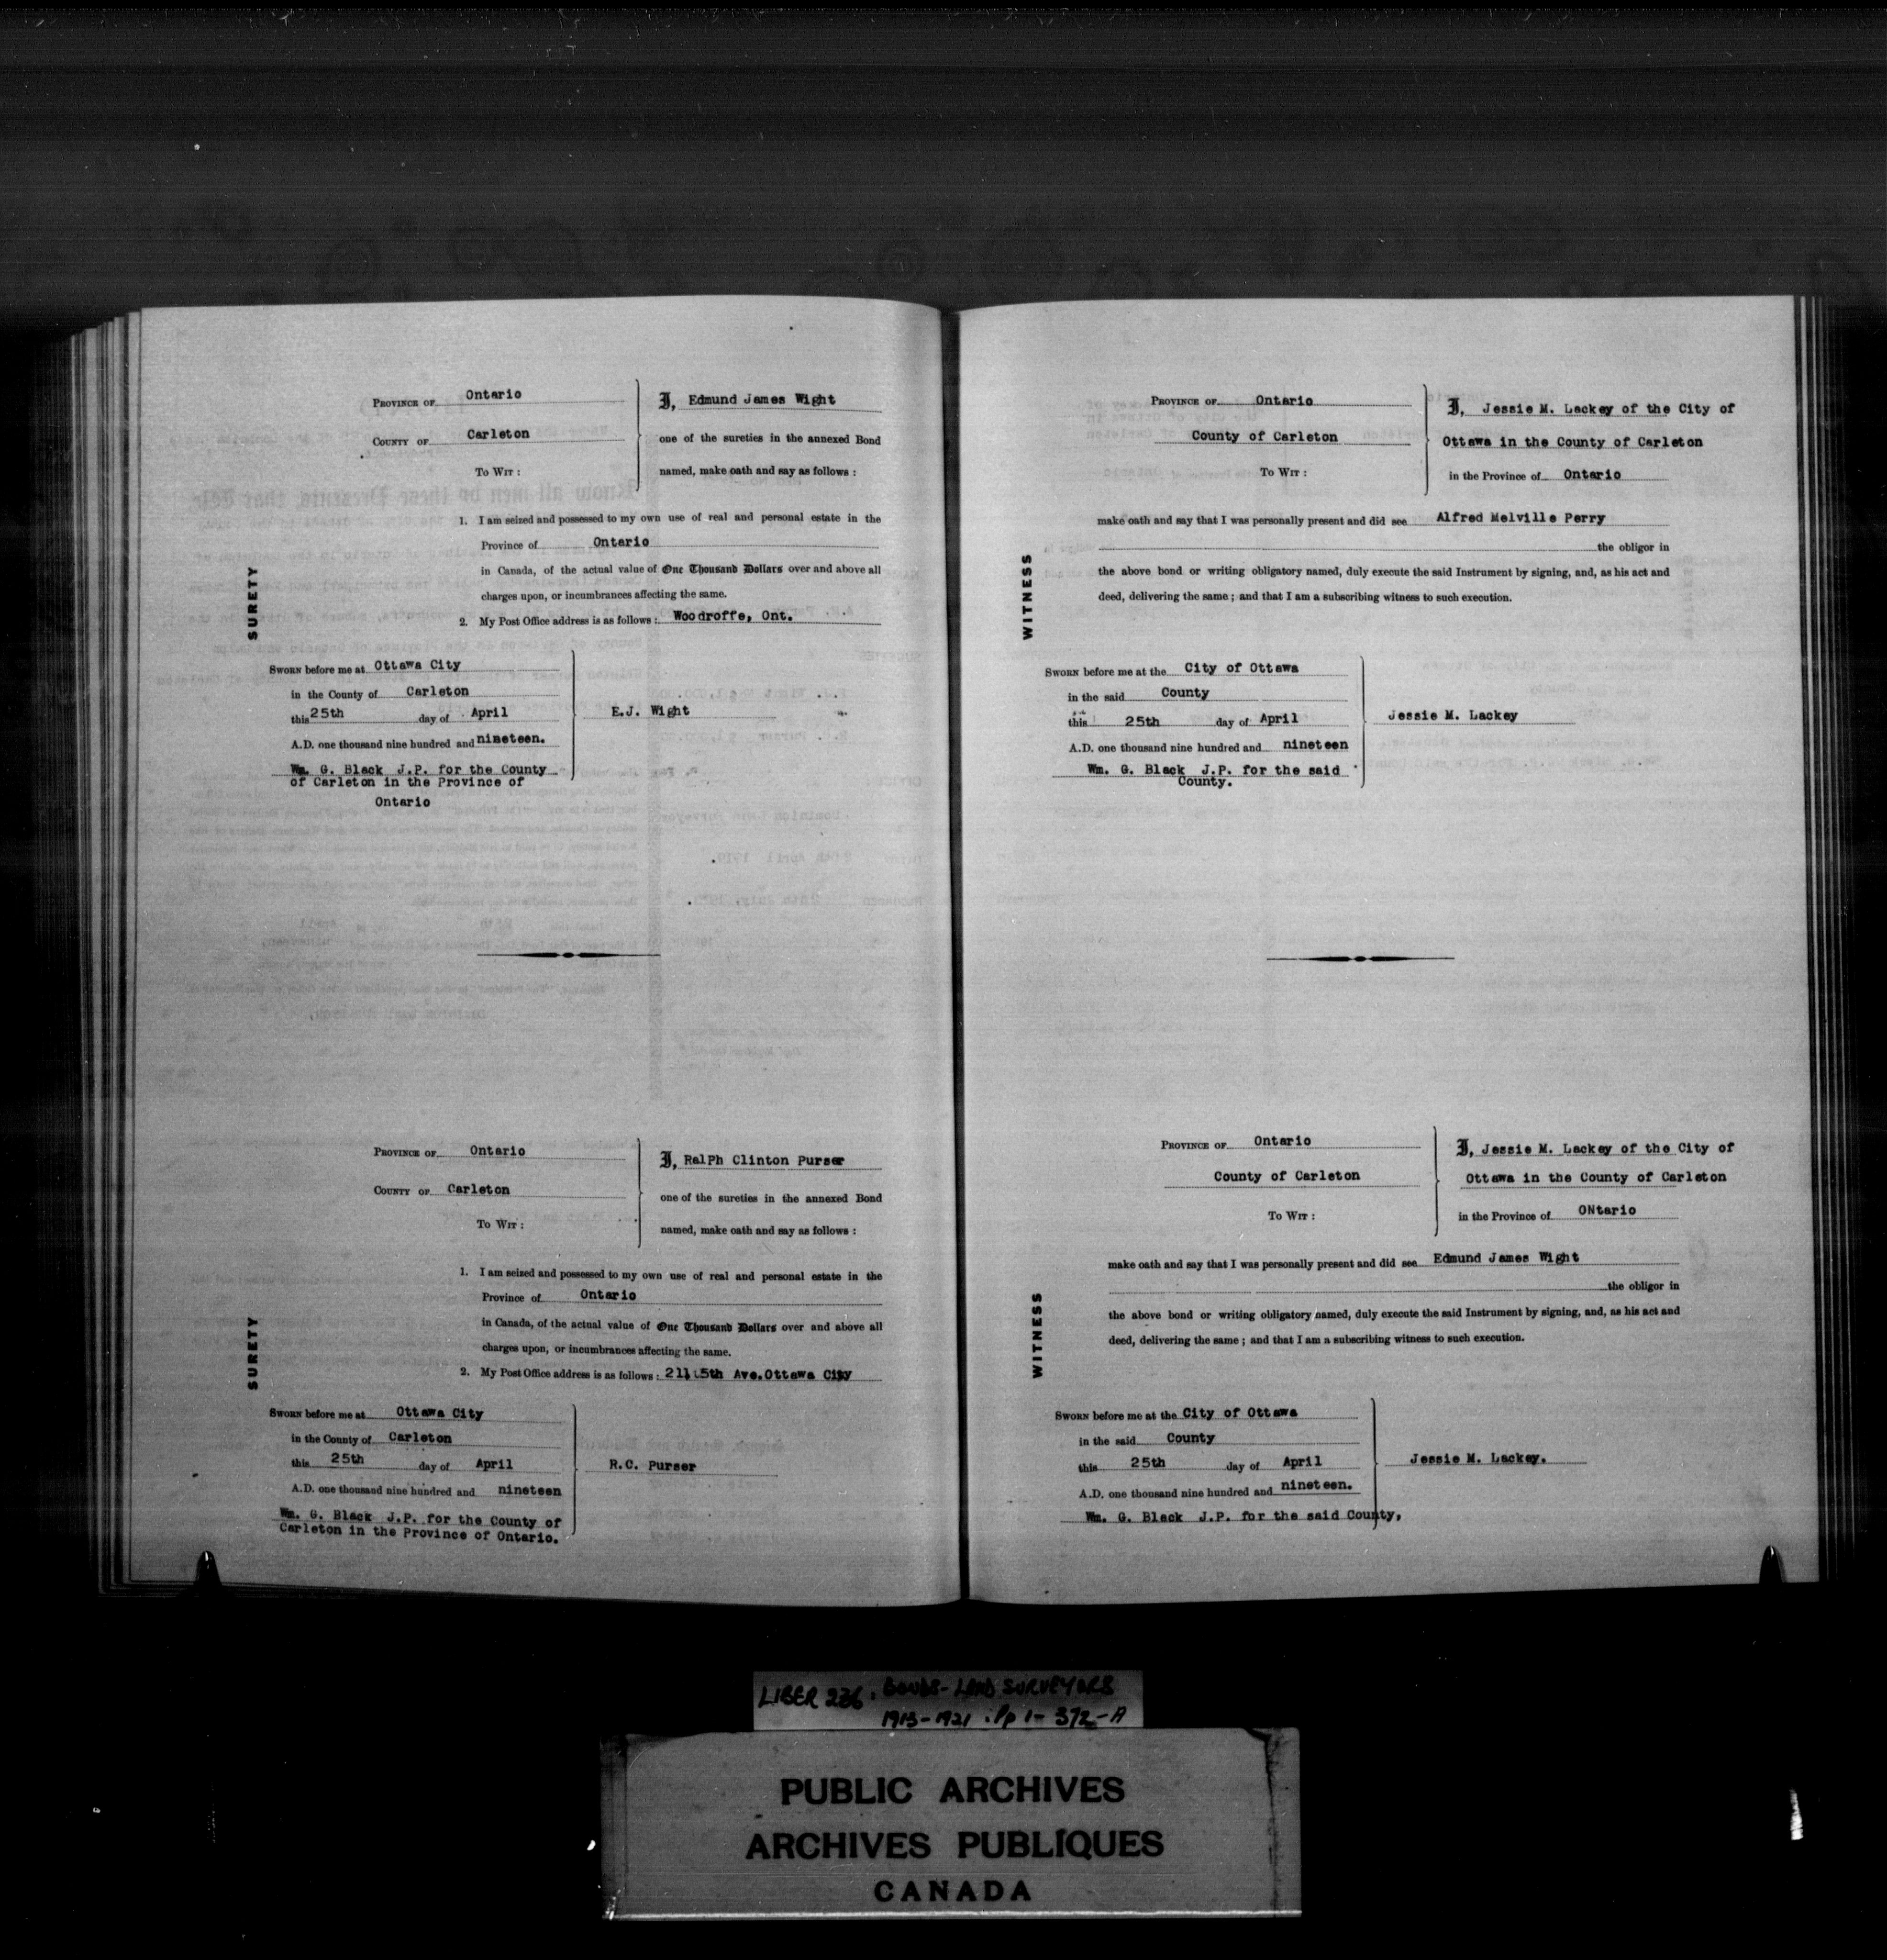 PROVINCE OF Ontario
COUNTY OF Carleton
TO WIT :
I, Edmund James Wight
one of the sureties in the annexed Bond
named, make oath and say as follows :
1. I am seized and possessed to my own use of real and personal estate in the
Province of Ontario
in Canada, of the actual value of One Thousand Dollars over and above all
charges upon, or incumbrances affecting the same.
2. My Post Office address is as follows : Woodroffe, Ont.
SURETY
SWORN before me at Ottawa City
in the County of Carleton
this 25th day of April
A.D. one thousand nine hundred and nineteen.
Wm. G. Black J.P. for the County
of Carleton in the Province of
Ontario
E.J. Wight
PROVINCE OF Ontario
COUNTY OF Carleton
TO WIT :
I, RalPh Clinton Purser
one of the sureties in the annexed Bond
named, make oath and say as follows :
1. I am seized and possessed to my own use of real and personal estate in the
Province of Ontario
in Canada, of the actual value of One Thousand Dollars over and above all
charges upon, or incumbrances affecting the same.
2. My Post Office address is as follows : 5th Ave.Ottawa City
SURETY
SWORN before me at Ottawa City
in the County of Carleton
this 25th day of April
A.D. one thousand nine hundred and nineteen
Wm. G. Black J.P. for the County of
Carleton in the Province of Ontario.
R.C. Purser
PROVINCE OF Ontario
County of Carleton
TO WIT :
I, Jessie M. Lackey of the City of
Ottawa in the County of Carleton
in the Province of Ontario
make oath and say that I was personally present and did see Alfred Melville Perry
the obligor in
the above bond or writing obligatory named, duly execute the said Instrument by signing, and, as his act and
deed, delivering the same ; and that I am a subscribing witness to such execution.
WITNESS
SWORN before me at the City of Ottawa
in the said County
this 25th day of April
A.D. one thousand nine hundred and nineteen
Wm. G. Black J.P. for the said
County.
Jessie M. Lackey
PROVINCE OF Ontario
County of Carleton
TO WIT :
I, Jessie M. Lackey of the City of
Ottawa in the County of Carleton
in the Province of ONtario
make oath and say that I was personally present and did see Edmund James Wight
the obligor in
the above bond or writing obligatory named, duly execute the said Instrument by signing, and, as his act and
deed, delivering the same ; and that I am a subscribing witness to such execution.
WITNESS
SWORN before me at the City of Ottawa
in the said County
this 25th day of April
A.D. one thousand nine hundred and nineteen.
Wm. G. Black J.P. for the said County,
Jessie M. Lackey.
LIBER 236. BONDS-LAND SURVEYORS
1913-1921 : Pp 1- 372-A
PUBLIC ARCHIVES
ARCHIVES PUBLIQUES
CANADA